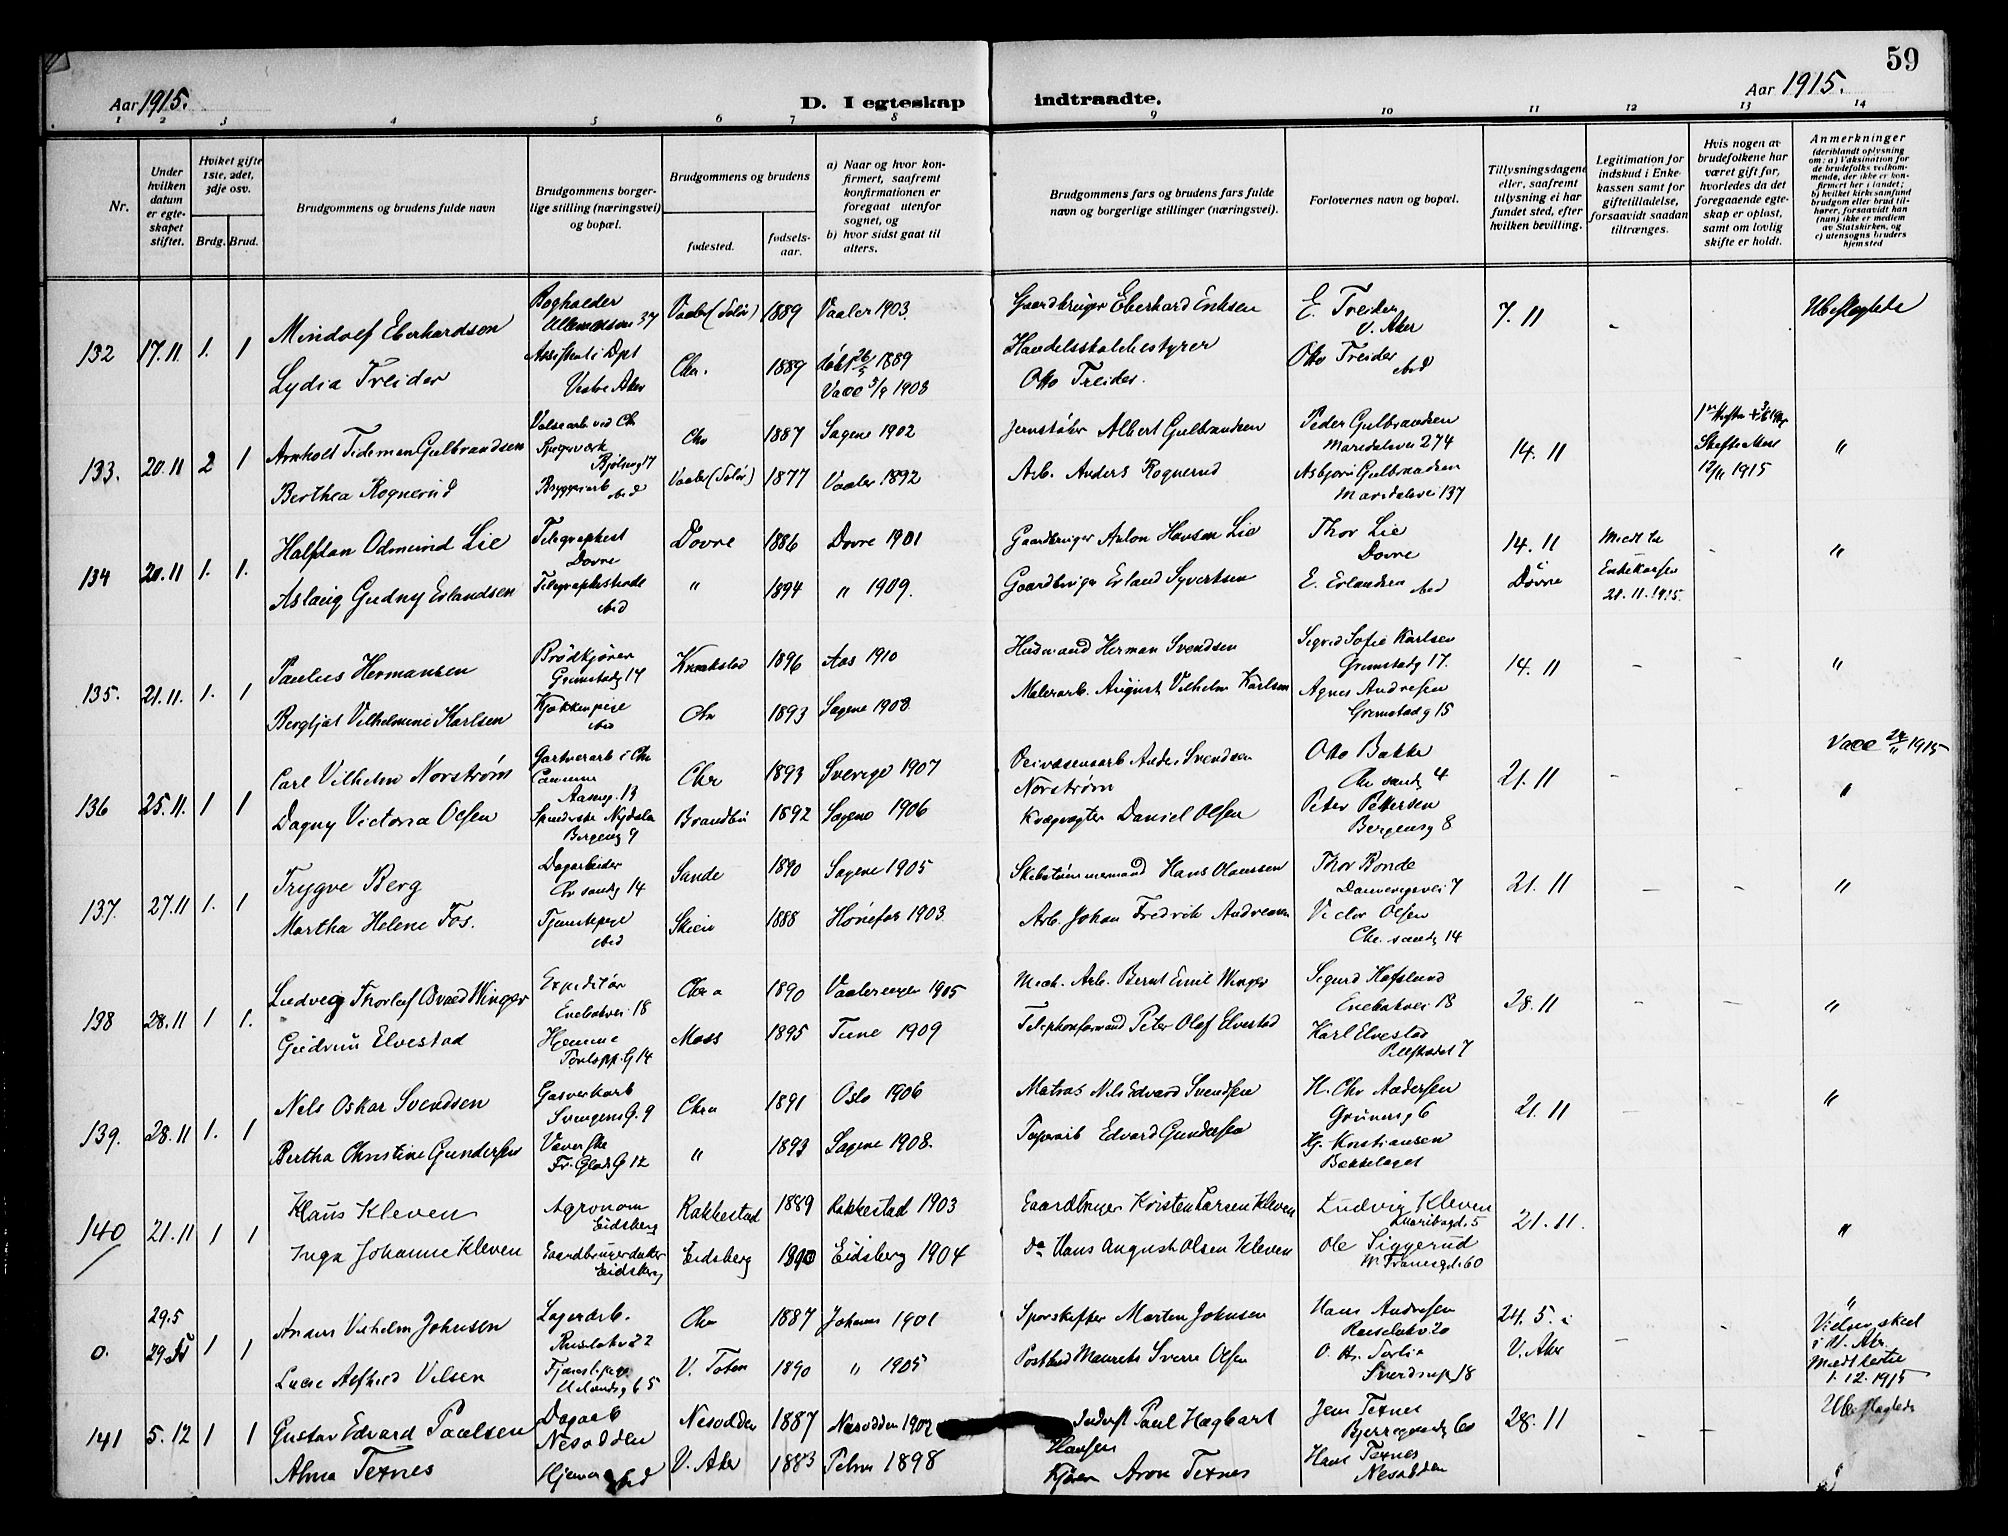 59
Aar 1915.
D. I egteskap indtraadte.
Aar 1915.
1 2 3 4 5 6 7 8 9 10 11 12 13 14
Nr.
Under hvilken datum er egteskapet stiftet.
Hviket gifte 1ste, 2det, 3dje osv.
Brdg. Brud.
Brudgommens og brudens fulde navn
Brudgommens borgerlige stilling (næringsvei) og bopæl.
Brudgommens og brudens
fødested.
fødselsaar.
a) Naar og hvor konfirmert, saafremt konfirmationen er foregaat utenfor sognet, og
b) hvor sidst gaat til alters.
Brudgommens fars og brudens fars fulde navn og borgerlige stillinger (næringsvei).
Forlovernes navn og bopæl.
Tillysningsdagene eller, saafremt tillysning ei har fundet sted, efter hvilken bevilling.
Legitimation for indskud i Enkekassen samt for giftetilladelse, forsaavidt saadan tiltrænges.
Hvis nogen av brudefolkene har været gift før, hvorledes da det foregaaende egteskap er opløst, samt om lovlig skifte er holdt.
Anmerkninger
(deriblandt oplysning om: a) Vaksination for de brudefolks vedkommende, der ikke er konfirmert her i landet; b) hvilket kirkesamfund brudgom eller brud tilhører, forsaavidt han (hun) ikke er medlem av Statskirken, og c) utensogns bruders hjemsted
132 17.11 1. 1 Mindolf Eberhardsen Bogholder Ullevaalsvn 37 Vaaler (Solør) 1889 Vaaler 1903. Gaardbruger Eberhard Eriksen E. Treider V. Aker 7.11 Ubeslegtede
Lydia Treider Vestre Aker Chr. 1889 døbt 1889 1903 Handelsskolebestyrer Otto Treider. Otto Treider ibid
133. 20.11 2 1 Arnholt Tideman Gulbrandsen Valsearb ved Chr Spigerverk Bjølseng 17 Chr 1887 Sagene 1902 Jernstøber Albert Gulbrandsen Peder Gulbrandsen Maridalsvei 274 14.11 Skifte 12/11 1915 "
Berthea Rognerud Bryggeriarb ibid Vaaler (Solør) 1877 Vaaler 1892 Arb. Anders Rognerud Asbjørn Gulbrandsen Maridalsvei 137
134 20.11 1. 1. Halfdan Odmund Lie Telegraphist Dovre Dovre 1886 Dovre 1901 Gaardbruger Anton Hansen Lie Thor Lie Dovre 14.11 i Dovre Medt til Enkekassen 21.11.1915. - "
Aslaug Gudny Erlandsen ibid " 1894 " 1909. Gaardbruger Erland Syvertsen E. Erlandsen ibid
135. 21.11. 1. 1 Paulus Hermansen Brødkjører Grimstadg 17 Kraakstad 1896 Aas 1910 Husmand Herman Svendsen Sigrid Sofie Karlsen Grimstadg 17. 14.11 - - "
Bergljot Vilhelmine Karlsen Kjøkkenpige ibid Chr 1893 Sagene 1908 Malerarb. August Vilhelm Karlsen Agnes Andresen Grimstadg 15
136 25.11. 1 1 Carl Vilhelm Norstrøm Gartnerarb i Chr Aaseng. 13 Chr 1893 Sverige 1907 Norstrøm Otto Bakke Chr sandg 4 21.11 - - Vacc 1915 "
Dagny Victoria Olsen Nydalen Bergensg 9 Brandbu 1892 Sagene 1906 Kvægvogter Daniel Olsen Peter Pettersen Bergensg 8
137. 27.11 1. 1 Trygve Berg Dagarbeider Chr sandg 14 Sande 1890 Sagene 1905 Skibstømmermand Hans Olaussen Thor Bonde 21.11 - - "
Martha Helene Fos. Tjenestepige ibid Skien 1888 Hønefos 1903 Arb. Johan Fredrik Andresen Victor Olsen Chr. sandg 14
138 28.11 1 1. Ludvig Thorleif Osvald Winger Expeditør Enebakvei 18 Chra 1890 Vaalerengen 1905 Mech. Arb. Bernt Emil Winger Sigurd Hafslund Enebakvei 18 28.11 - - "
Gudrun Elvestad Hjemme Moss 1895 Tune 1909 Telephonformand Peter Olaf Elvestad Karl Elvestad
139. 28.11 1. 1 Nels Oskar Svendsen Gasverkarb Svingens G. 9 Chra 1891 Oslo 1906 Matros Nils Edvard Svendsen H. Chr Andersen Grünersg 6 21.11 - - "
Bertha Christine Gundersen Væverske Fr. Glads G 12 " 1893 Sagene 1908. Edvard Gundersen Hj. Kristiansen Bækkelaget
140 21.11 1 1 Klaus Kleven Agronom Eidsberg Rakkestad 1889 Rakkestad 1903 Gaardbruger Kristen Larsen Kleven Ludvig Kleven 21.11. "
Inga Johanne Kleven Gaardbrugerdatter Eidsberg Eidsberg 1890 Eidsberg 1904 Do Hans August Olsen Kleven Ole Siggerud
0. 29.5 1 1 Anders Vilhelm Johnsen Lagerarb. Chr 1887 Johannes 1901 Sporskifter Morten Johnsen Hans Andresen 24.5. i V. Aker - - " Vielsen skeet i V. Aker 1.12.1915
V. Toten 1890 " 1905 Sverre Olsen
141 5.12 1 1 Gustav Edvard Paulsen Dagarb Nesodden Nesodden 1887 Nesodden 1902 Inderst Paul Hagbart Hansen Jens Texnes 28.11 - - Ubeslegtede
Alma Texnes Hjemme ibid V. Aker 1883 1898 Kjører Aron Texnes Hans Texnes Nesodden